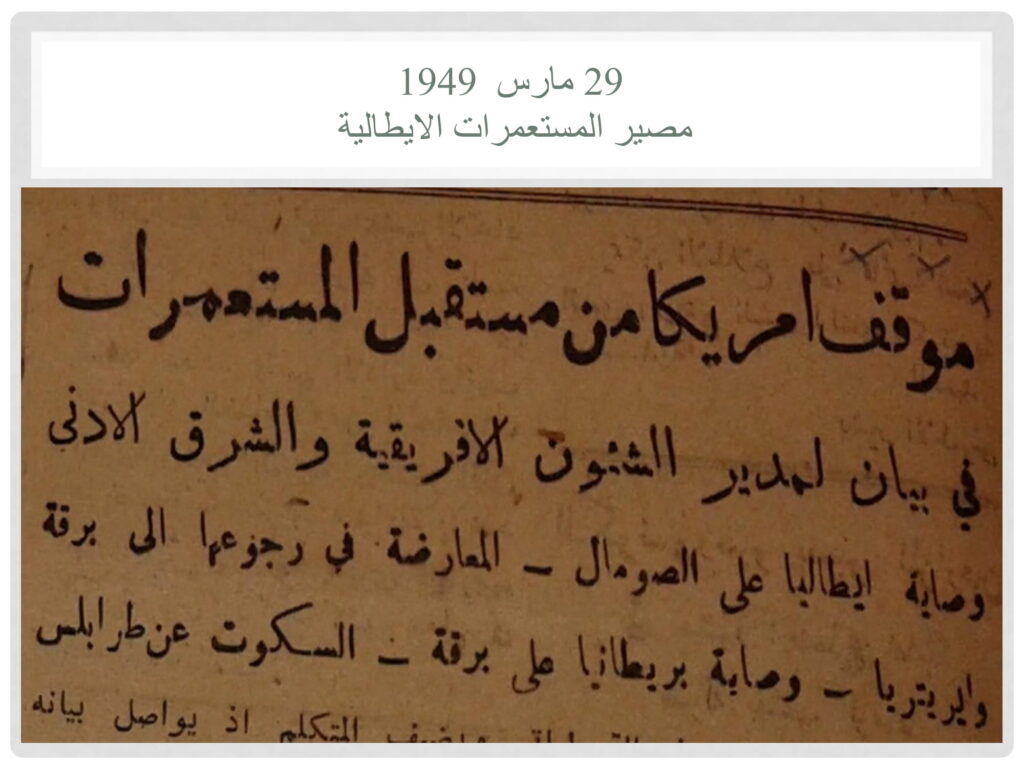 29 مارس 1949
مصير المستعمرات الايطالية
موقف امريكا من مستقبل المستعمرات
في بيان لمدير الشئون الافريقية والشرق الادنى
وصاية ايطاليا على الصومال – المعارضة في رجوعها الى برقة
وايريتريا – وصاية بريطانيا على برقة – السكوت عن طرابلس
المتكلم اذ يواصل بيانه